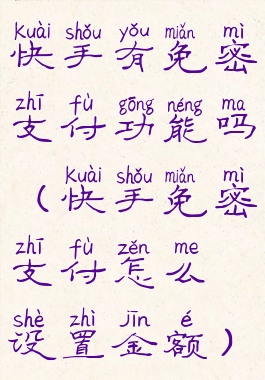 kuài shǒu yǒu miǎn mì
快手有免密
zhī fù gōng néng ma
支付功能吗
kuài shǒu miǎn mì
(快手免密
zhī fù zěn me
支付怎么
shè zhì jīn é
设置金额)